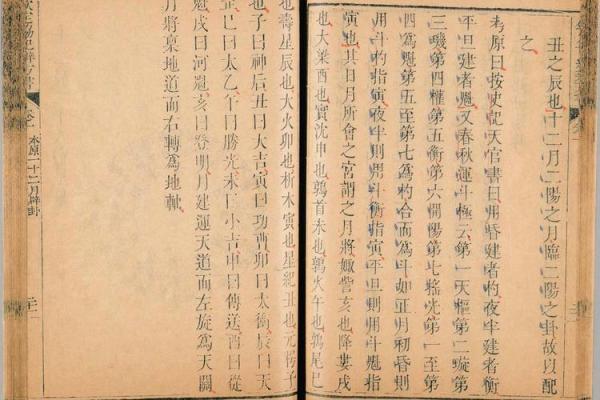 丑之辰也十二月二陽之月臨二陽之卦故以配
之
考原曰按史記天官書曰用昏建者杓夜半建者衡
平旦建者魁又春秋運斗極云第一天樞第二璇第
三璣第四權第五衡第六開陽第七搖光第一至第
四爲魁第五至第七爲杓合而爲斗如正月初昏則
用斗杓指寅夜半則用斗衡指寅平旦則用斗魁指
寅也其日月所會之宮謂之月將娵訾亥也降婁戌
也大梁酉也實沈申也鶉首未也鶉火午也鶉尾巳
也壽星辰也大火卯也析木寅也星紀丑也元枵子
也子曰神后丑曰大吉寅曰功曹卯曰太衝辰曰天
罡巳曰太乙午曰勝光未曰小吉申曰傳送酉曰從
魁戌曰河魁亥曰登明月建運天道而左旋爲天關
月將乘地道而右轉爲地軸
卷一 本原一 十二月辟卦